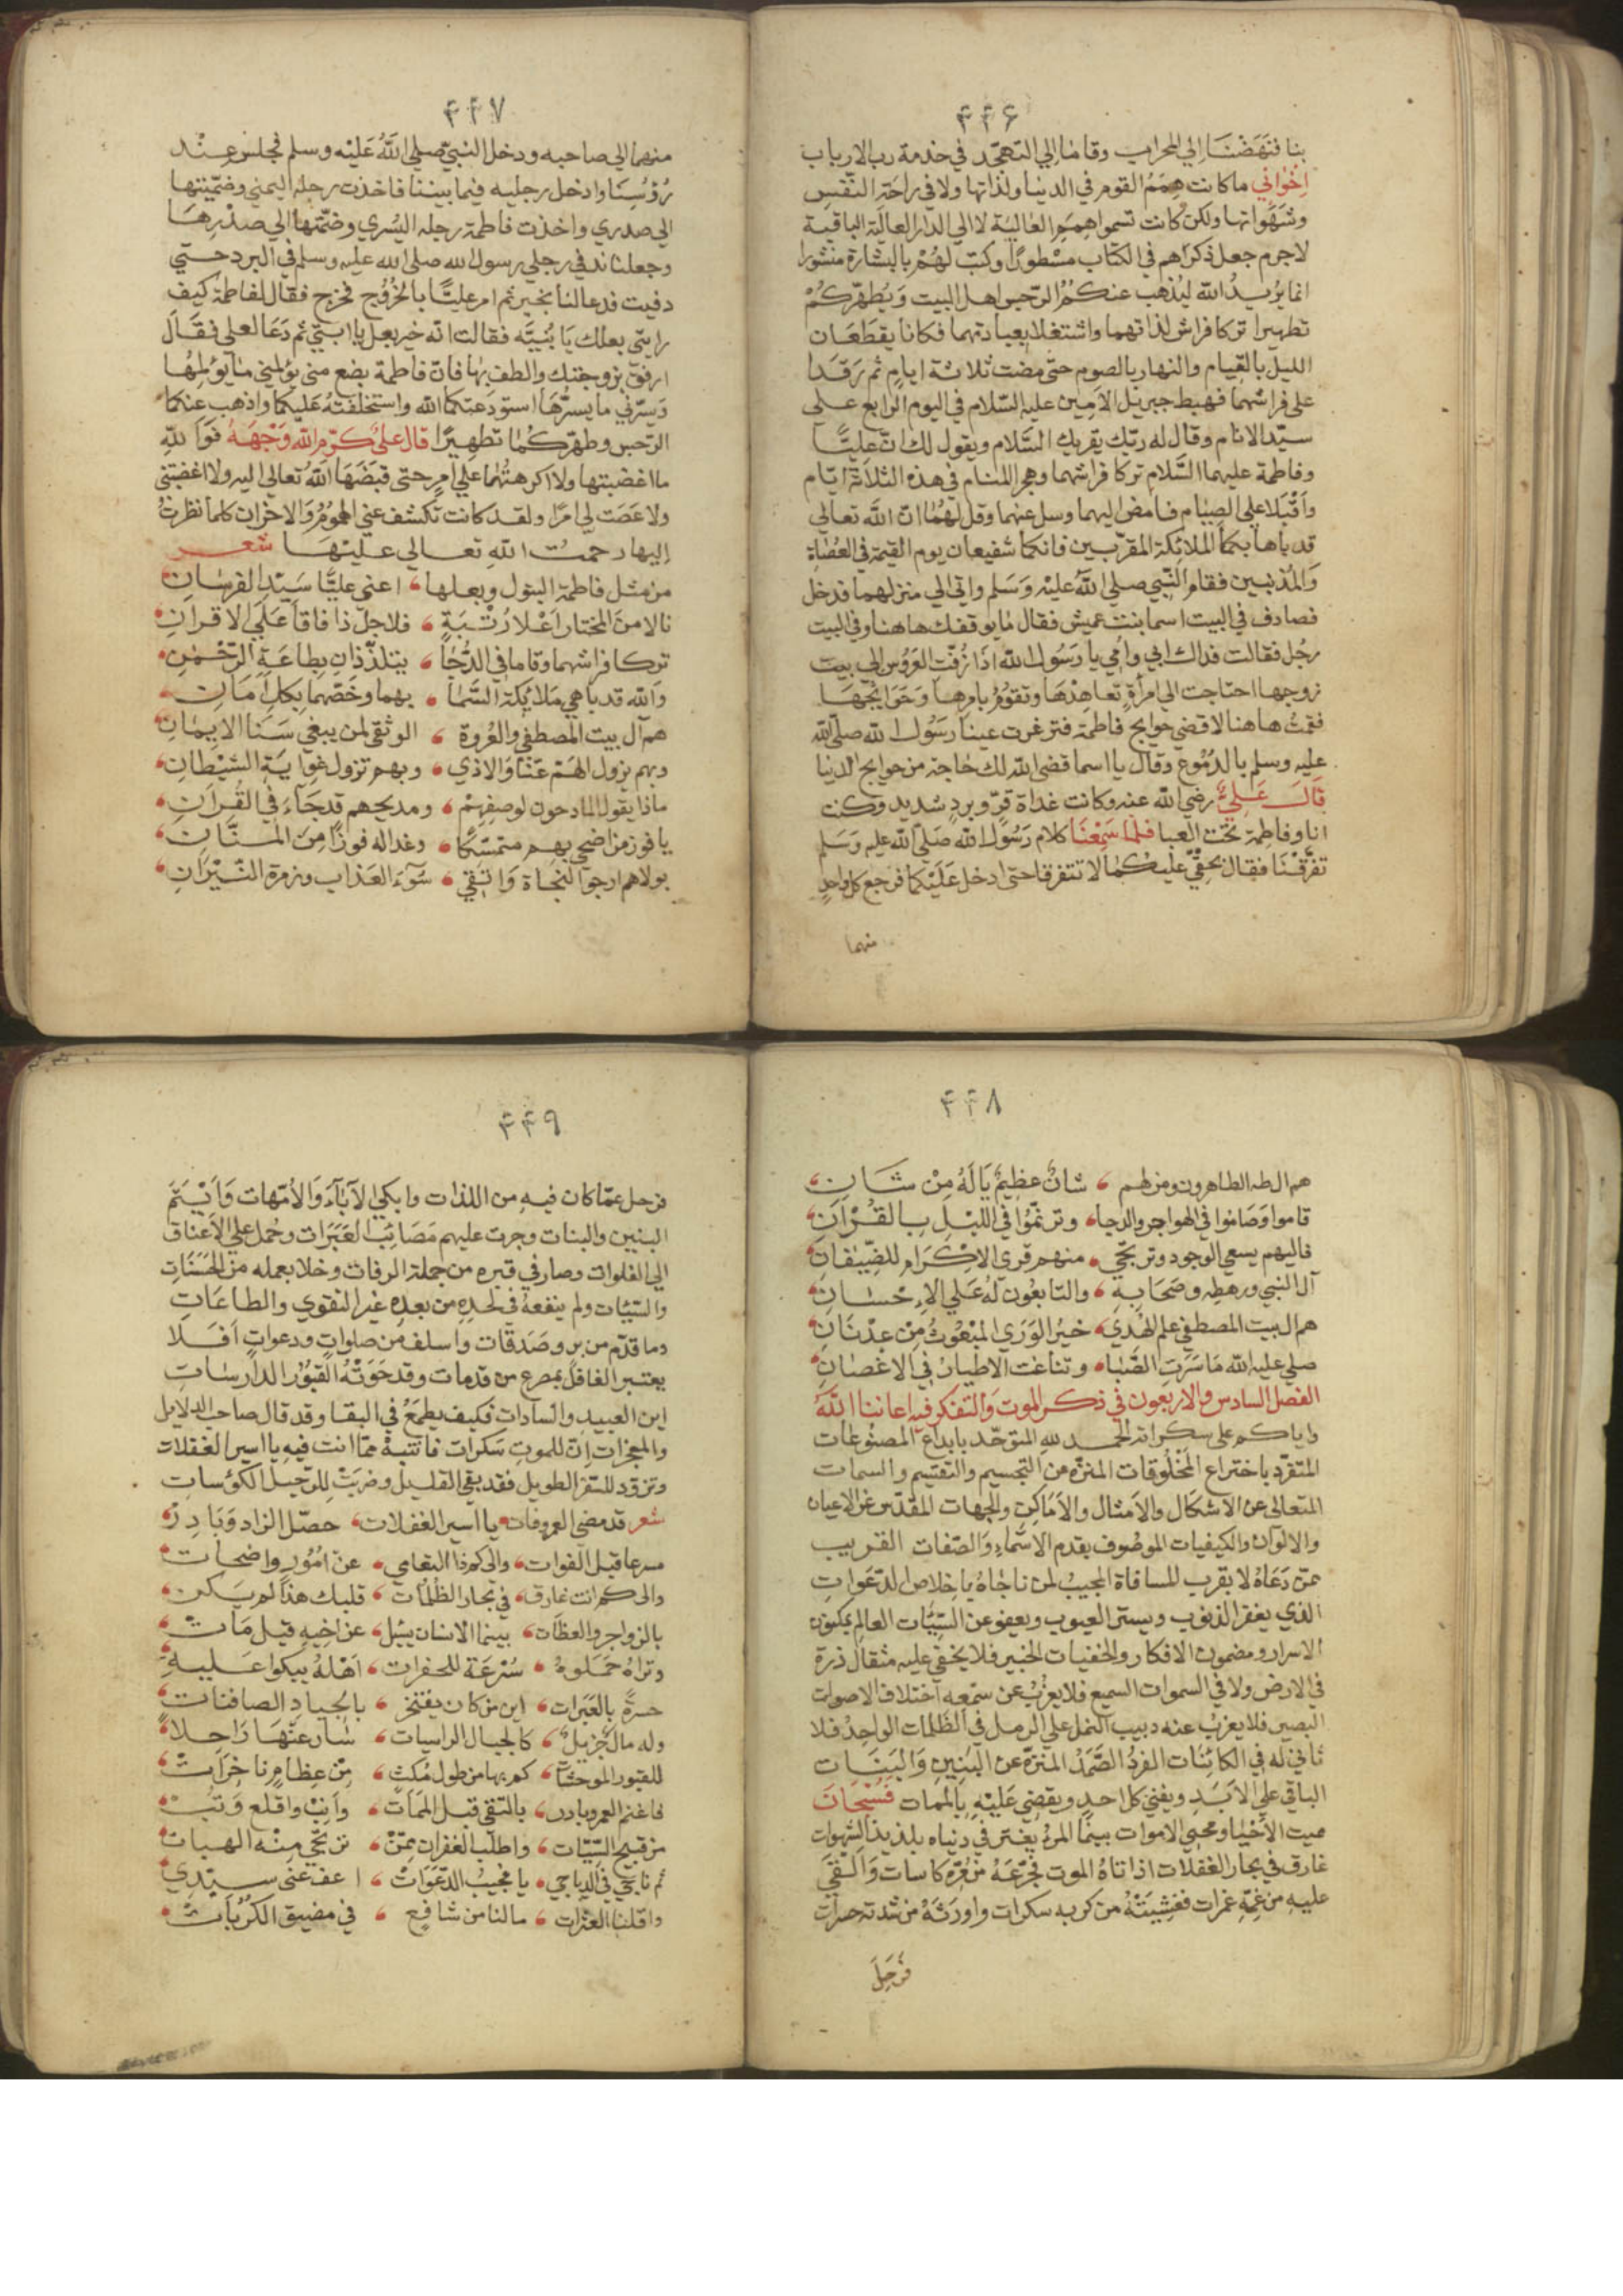 ٤٤٦
بنا فنهضنا إلى المحراب وقامنا إلى التهجد في خدمة رب الارباب
اِخْوَاني ما كانت هِمَمُ القوم في الدنيا ولذاتها ولا في راحة النفس
وشهواتها ولكن كانت تسموا هممهم العالية لا الي الدار العالية الباقية
لاجرم جعل ذكراهم في الكتاب مسطورًا وكتب لهم بالبشارة منشورا
انما يريد الله ليذهب عنكم الرجس اهل البيت ويطهركم
تطهيرا تركا فراش لذاتهما واشتغلا بعبادتهما فكانا يقطعان
الليل بالقيام والنهار بالصوم حتى مضت ثلاثة ايام ثم رقدا
على فراشهما فهبط جبريل الامين عليه السلام في اليوم الرابع على
سيد الانام وقال له ربك يقريك السلام ويقول لك ان عليًّا
وفاطمة عليهما السلام تركا فراشهما وهجر المنام في هذه الثلاثة ايام
واقبلا على الصيام فامض اليهما وسل عنهما وقل لهما ان الله تعالى
قد باها بكما الملائكة المقربين فانكما شفيعان يوم القيمة في العصاة
والمذنبين فقام النبي صلي الله عليه وسلم واتي الي منزلهما فدخل
فصادف في البيت اسما بنت عميش فقال ما يوقفك هاهنا وفي البيت
رجل فقالت فداك ابي وامي يا رسول الله اذا زفت العروس الي بيت
زوجها احتاجت الي امرأة تعاهدها وتقوم بامرها وحوايجها
فقمت هاهنا لاقضي حوايج فاطمة فترغرغت عينا رسول الله صلى الله
عليه وسلم بالدموع وقال يا اسما قضى الله لك حاجة من حوايج الدنيا
قال علي رضي الله عنه وكانت غداة قرّ وبرد شديد وكنت
انا وفاطمة تحت العبا فلما سمعنا كلام رسول الله صلى الله عليه وسلم
تفرقنا فقال بحقي عليكما لا تتفرقا حتى ادخل عليكما فرجع كل واحد
منهما
٤٤٧
منهما الي صاحبه ودخل النبي صلي الله عليه وسلم فجلس عند
رؤسنا وادخل رجليه فيما بيننا فاخذت رجله اليمني وضميتها
الي صدري واخذت فاطمة رجله اليسري وضمتها الي صدرها
وجعلنا ندفي رجلي رسول الله صلي الله عليه وسلم في البرد حتي
دفيت فدعا لنا بخير ثم امر عليًّا بالخروج فخرج فقال لفاطمة كيف
رايتي بعلك يا بنيه فقالت انه خير بعل يا ابتي ثم دعا لعلي فقال
ارفق بزوجتك والطف بها فان فاطمة بضع مني يؤلمني ما يؤلمها
ويسرني ما يسرها استودعتكما الله واستخلفته عليكما واذهب عنكما
الرجس وطهركما تطهيرًا قال علي كرم الله وجهه فوالله
ما اغضبتها ولا اكرهتها علي امر حتى قبضها الله تعالى اليه ولا اغضبتني
ولا عصت لي امرًا ولقد كانت تكشف عني الهموم والاحزان كلما نظرت
اليها رحمت الله تعالى عليها شعر
من مثل فاطمة البتول وبعلها ، اعني عليًّا سيد الفرسان
نالا من المختار اعلا رتبة ، فلاجل ذا فاقا علي الاقران
تركا فراشهما وقاما في الدجا ، يتلذذان بطاعة الرحمن
والله قد باهي ملائكة السما ، بهما وخصهما بكل امان
هم آل بيت المصطفي والعروة ، الوثقي لمن يبغي سنا الايمان
وبهم يزول الهم عنا والاذي ، وبهم تزول غواية الشيطان
ماذا يقول المادحون لوصفهم ، ومديحهم قد جآء في القران
يا فوز من اضحي بهم متمسكا ، وغدا له فوزا من المنان
بولاهم ارجوا النجاة واتقي ، سوء العذاب وزمرة النيران
٤٤٨
هم ال طه الطاهرون ومن لهم ، شان عظيم يا له من شان
قاموا وصاموا في الهواجر والدجا ، وترنموا في الليل بالقرآن
فاليهم يسعي الوجود وترتجي ، منهم قري الاكرام للضيفان
آل النبي ورهطه وصحابه ، والتابعون له علي الاحسان
هم ال بيت المصطفي علم الهدي ، خير الوري المبعوث من عدنان
صلي عليه الله ما سرت الصبا ، وتناغت الاطيار في الاغصان
الفصل السادس والاربعون في ذكر الموت والتفكر فيه اعاننا الله
واياكم على سكراته الحمد لله المتوحد بابداع المصنوعات
المتفرد باختراع المخلوقات المنزه من التجسيم والتقسيم والسمات
المتعالى عن الاشكال والامثال والاماكن والجهات المقدس عن الاعيان
والالوان والكيفيات الموصوف بقدم الاسماء والصفات القريب
ممن دعاه لا بقرب المسافاة المجيب لمن ناجاه باخلاص الدعوات
الذي يغفر الذنوب ويستر العيوب ويعفو عن السيئات العالم بمكنون
الاسرار ومضمون الافكار والخفيات الخبير فلا يخفي عليه مثقال ذرة
في الارض ولا في السموات السميع فلا يعزب عن سمعه اختلاف الاصوات
البصير فلا يعزب عنه دبيب النمل علي الرمل في الظلمات الواحد فلا
ثاني له في الكائنات الفرد الصمد المنزه عن البنين والبنات
الباقي علي الابد ويفني كل احد ويقضي عليه بالممات فسبحان
مميت الاحيا ومحيي الاموات بينما المرء يغتر في دنياه بلذيذ الشهوات
غارق في بحار الغفلات اذا تاه الموت فجرعه من مره كاسات والقي
عليه من غمه غمرات فغشيته من كربه سكرات واورثه من شدته حسرات
فرحل
٤٤٩
فرحل عما كان فيه من اللذات وابكي الآباء والامهات وايتم
البنين والبنات وجرت عليهم مصائب العبرات وحمل علي الاعناق
الي الفلوات وصار في قبره من جملة الرفات وخلا بعمله من الحسنات
والسيئات ولم ينفعه في لحده من بعده غير التقوي والطاعات
وما قدم من بر وصدقات واسلف من صلوات ودعوات افلا
يعتبر الغافل بمصرع من قد مات وقد حوته القبور الدارسات
اين العبيد والسادات فكيف يطمع في البقا وقد قال صاحب الدلايل
والمعجزات ان للموت سكرات فانتبه مما انت فيه يا اسير الغفلات
وتزود للسفر الطويل فقد بقي القليل وضربت للرحيل الكؤسات
شعر قد مضي العمر وفات ، يا اسير الغفلات ، حصل الزاد وبادر
مسرعا قبل الفوات ، والى كم ذا التعامي ، عن امور واضحات
والى كم انت غارق ، في بحار الظلمات ، قلبك هذا لم يسكن
بالزواجر والعظات ، بينما الانسان يسئل ، عن اخيه قيل مات
وتراه حملوه ، سرعة للحفرات ، اهله يبكوا عليه
حسرة بالعبرات ، اين من كان يفتخر ، بالجياد الصافنات
وله مال جزيل ، كالجبال الراسيات ، سار عنها راحلا
للقبور الموحشات ، كم بها من طول مكث ، من عظام ناخرات
فاغنم العمر وبادر ، بالتقي قبل الممات ، وانب واقلع وتب
من قبيح السيئات ، واطلب الغفران ممن ، ترتجي منه الهبات
ثم ناجي في الدياجي ، يا مجيب الدعوات ، اعف عني سيدي
واقلنا العثرات ، ما لنا من شافع ، في مضيق الكربات